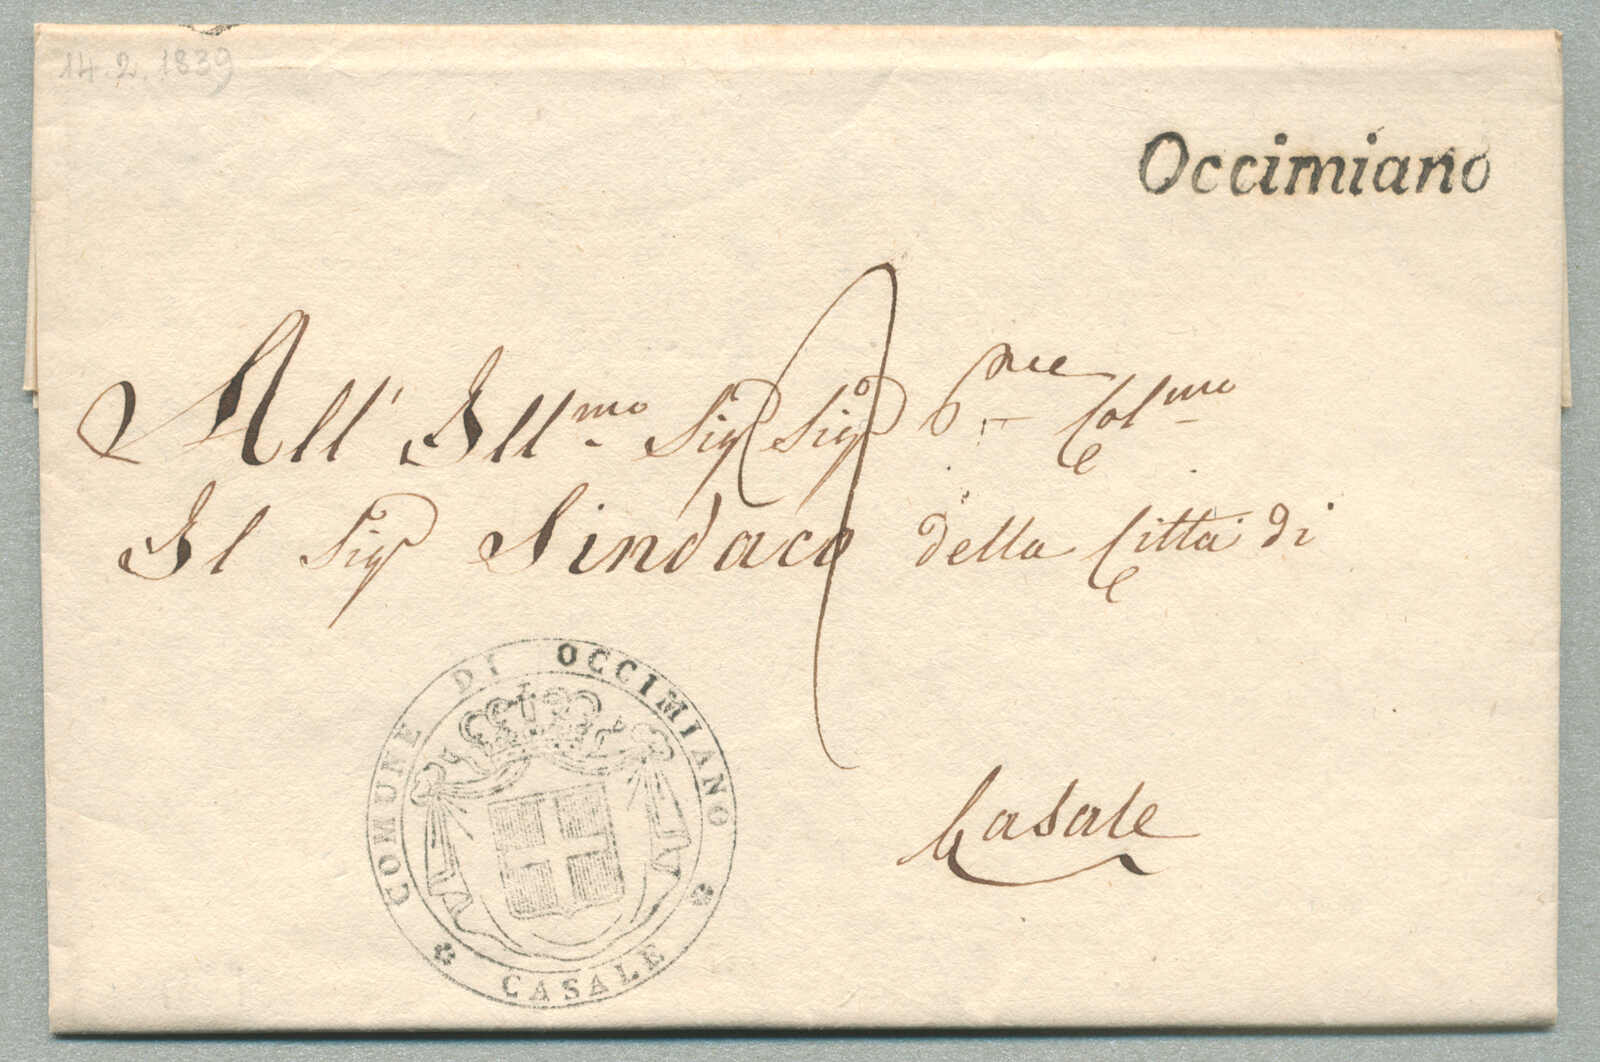 14.2.1839
Occimiano
All' Ill.mo Sig. Sig. P.ne Col.mo
Il Sig. Sindaco della Città di
Casale
COMUNE DI OCCIMIANO
CASALE